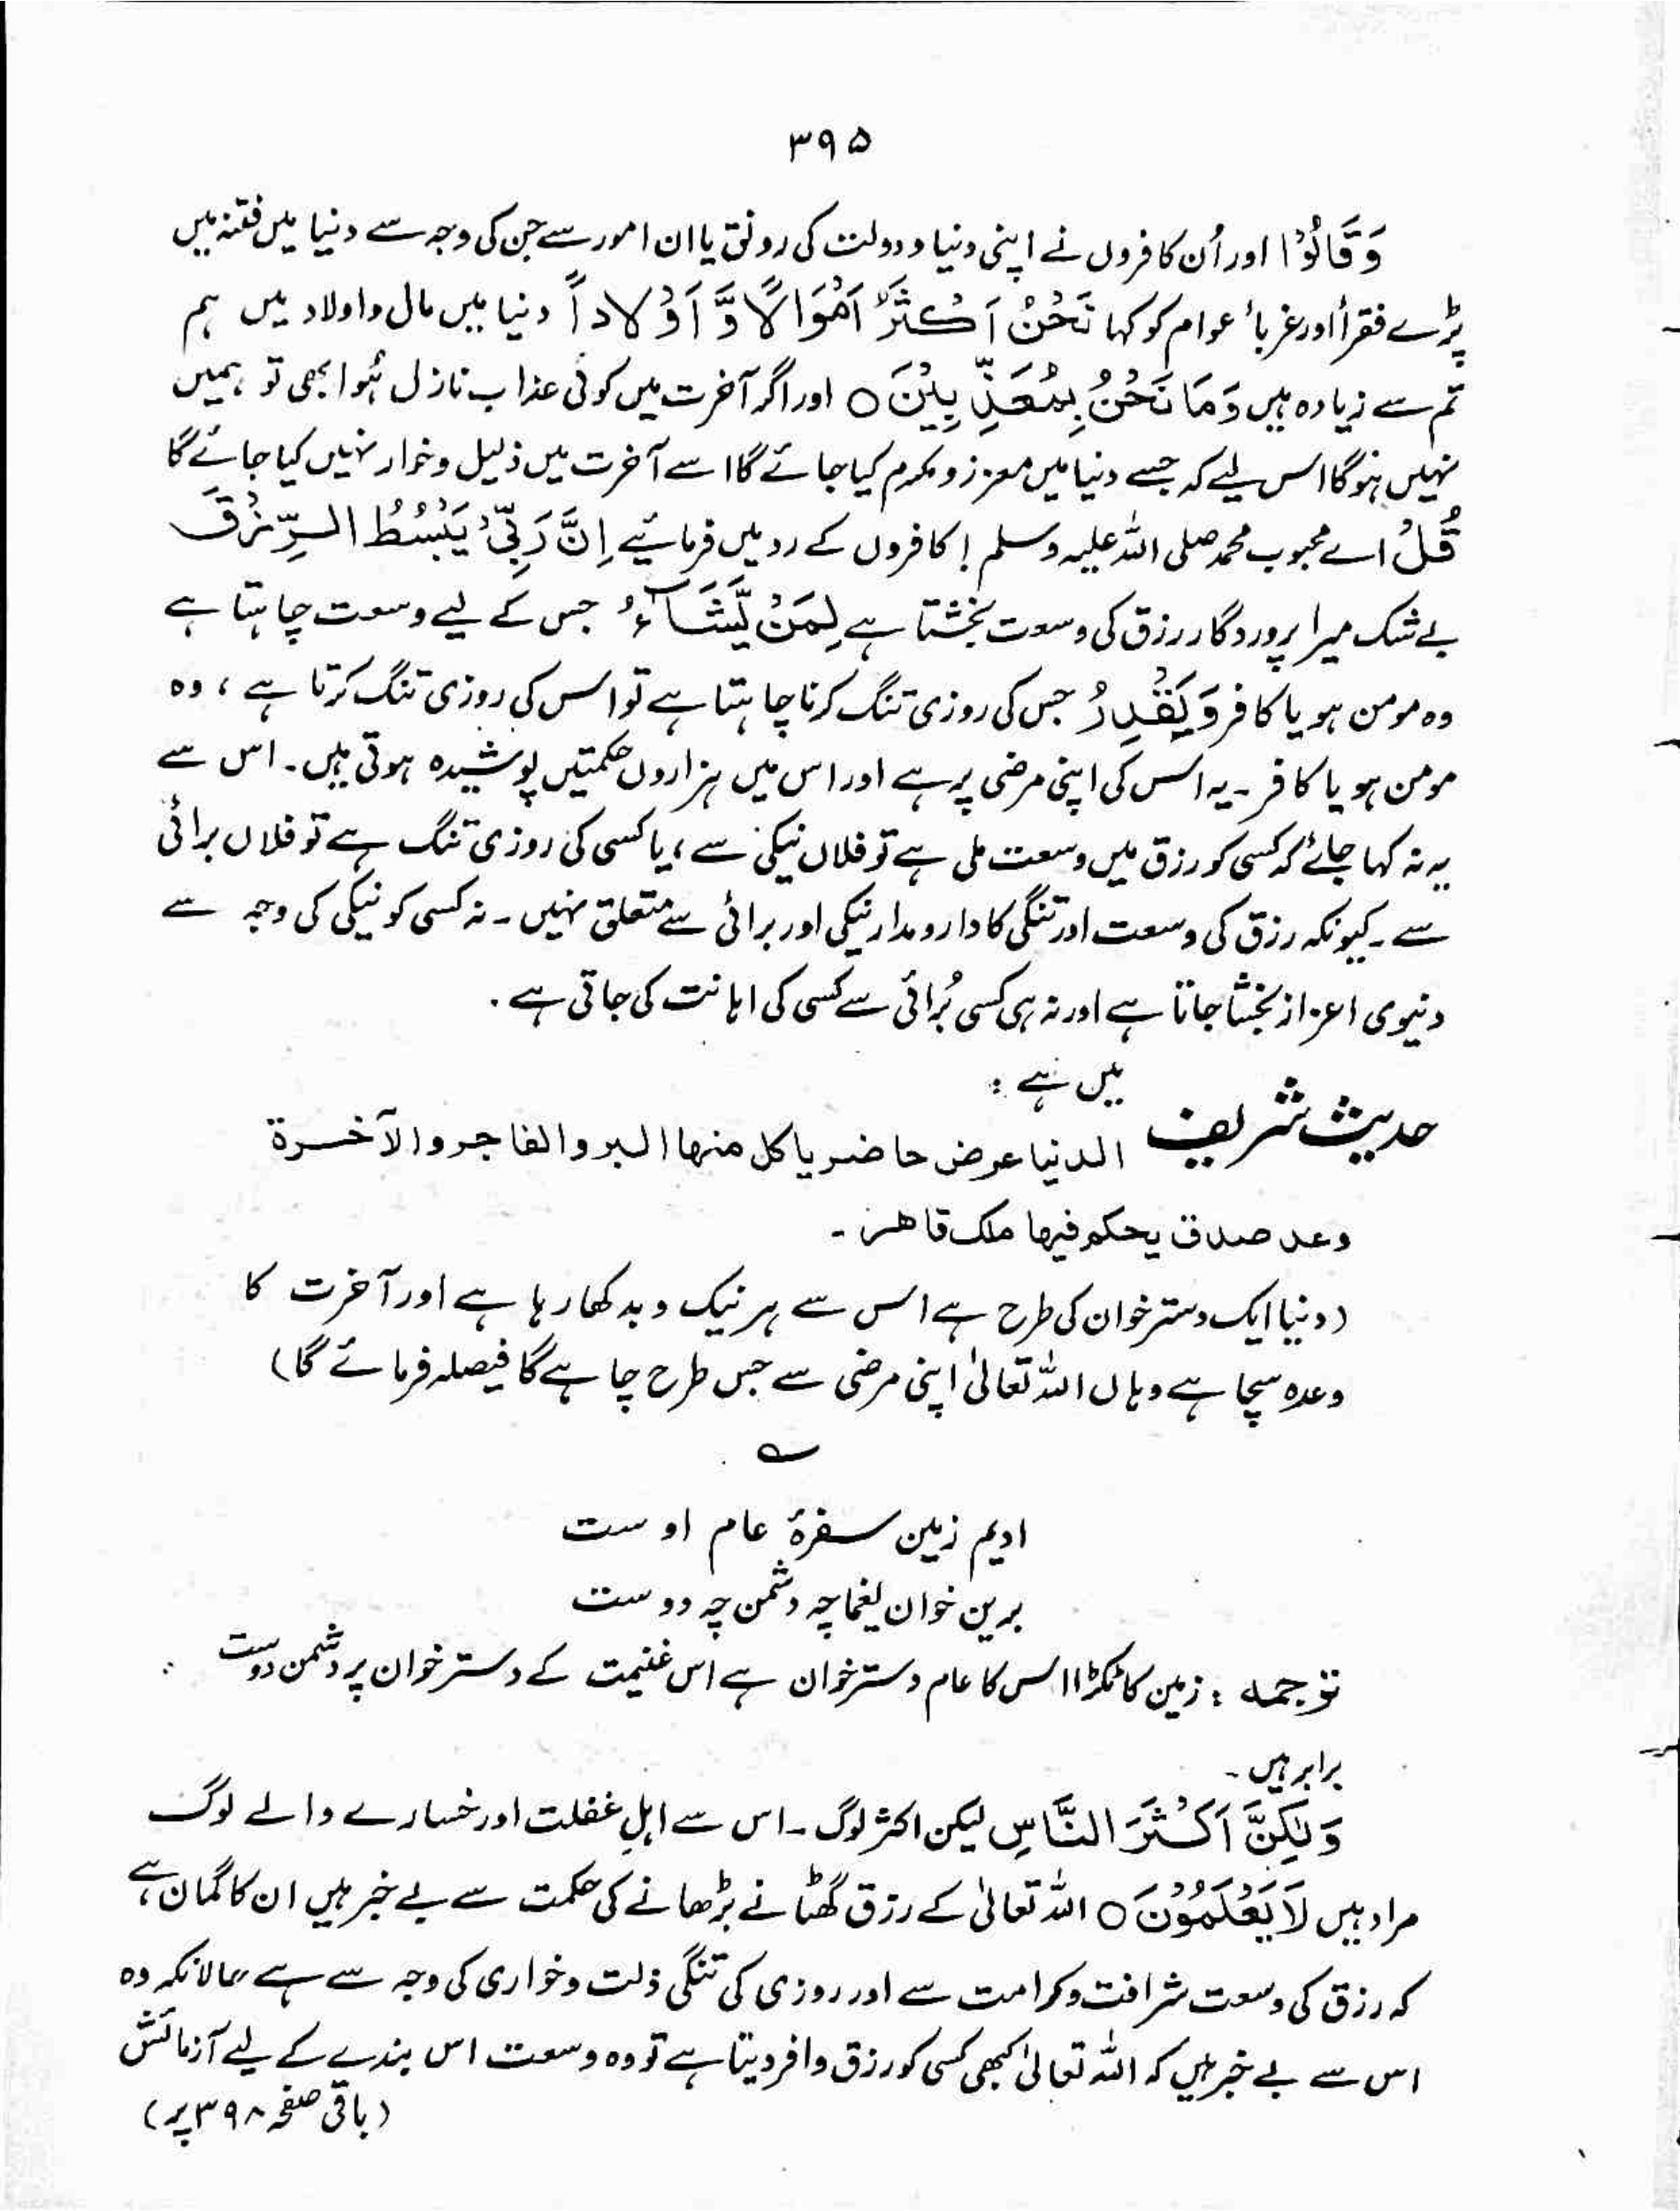 ۳۹۵
وَقَالُوْا اور اُن کافروں نے اپنی دنیا و دولت کی رونق یا ان امور سے جن کی وجہ سے دنیا میں فتنہ میں
پڑے فقرأ اور غربأ عوام کو کہا نَحْنُ اَكْثَرُ اَمْوَالًا وَّ اَوْلَاداً دنیا میں مال و اولاد میں ہم
تم سے زیادہ ہیں وَمَا نَحْنُ بِمُعَذَّبِيْنَ ○ اور اگر آخرت میں کوئی عذاب نازل ہُوا بھی تو ہمیں
نہیں ہوگا اس لیے کہ جسے دنیا میں معزز و مکرم کیا جائے گا اسے آخرت میں ذلیل و خوار نہیں کیا جائے گا
قُلْ اے محبوب محمد صلی اللہ علیہ وسلم ! کافروں کے رد میں فرمائیے اِنَّ رَبِّیْ يَبْسُطُ الرِّزْقَ
بے شک میرا پروردگار رزق کی وسعت بخشتا ہے لِمَنْ يَّشَآءُ جس کے لیے وسعت چاہتا ہے
وہ مومن ہو یا کافر وَيَقْدِرُ جس کی روزی تنگ کرنا چاہتا ہے تو اس کی روزی تنگ کرتا ہے ، وہ
مومن ہو یا کافر ۔ یہ اس کی اپنی مرضی پر ہے اور اس میں ہزاروں حکمتیں پوشیدہ ہوتی ہیں ۔ اس سے
یہ نہ کہا جائے کہ کسی کو رزق میں وسعت ملی ہے تو فلاں نیکی سے ، یا کسی کی روزی تنگ ہے تو فلاں برائی
سے ۔ کیونکہ رزق کی وسعت اور تنگی کا دارومدار نیکی اور برائی سے متعلق نہیں ۔ نہ کسی کو نیکی کی وجہ سے
دنیوی اعزاز بخشا جاتا ہے اور نہ ہی کسی بُرائی سے کسی کی اہانت کی جاتی ہے ۔
حدیث شریف میں ہے :
الدنیا عرض حاضر یاکل منھا البر والفاجر والآخرة
وعد صدق یحکم فیھا ملک قاھر ۔
(دنیا ایک دسترخوان کی طرح ہے اس سے ہر نیک و بد کھا رہا ہے اور آخرت کا
وعدہ سچا ہے وہاں اللہ تعالیٰ اپنی مرضی سے جس طرح چاہے گا فیصلہ فرمائے گا)
؎
ادیم زمین سفرۂ عام اوست
برین خوان یغما چہ دشمن چہ دوست
ترجمہ : زمین کا ٹکڑا اس کا عام دسترخوان ہے اس غنیمت کے دسترخوان پر دشمن دوست
برابر ہیں ۔
وَلٰكِنَّ اَكْثَرَ النَّاسِ لیکن اکثر لوگ ۔ اس سے اہلِ غفلت اور خسارے والے لوگ
مراد ہیں لَا يَعْلَمُوْنَ ○ اللہ تعالیٰ کے رزق گھٹانے بڑھانے کی حکمت سے بے خبر ہیں ان کا گمان ہے
کہ رزق کی وسعت شرافت و کرامت سے اور روزی کی تنگی ذلت و خواری کی وجہ سے ہے حالانکہ وہ
اس سے بے خبر ہیں کہ اللہ تعالیٰ کبھی کسی کو رزق وافر دیتا ہے تو وہ وسعت اس بندے کے لیے آزمائش
(باقی صفحہ ۳۹۸ پر)